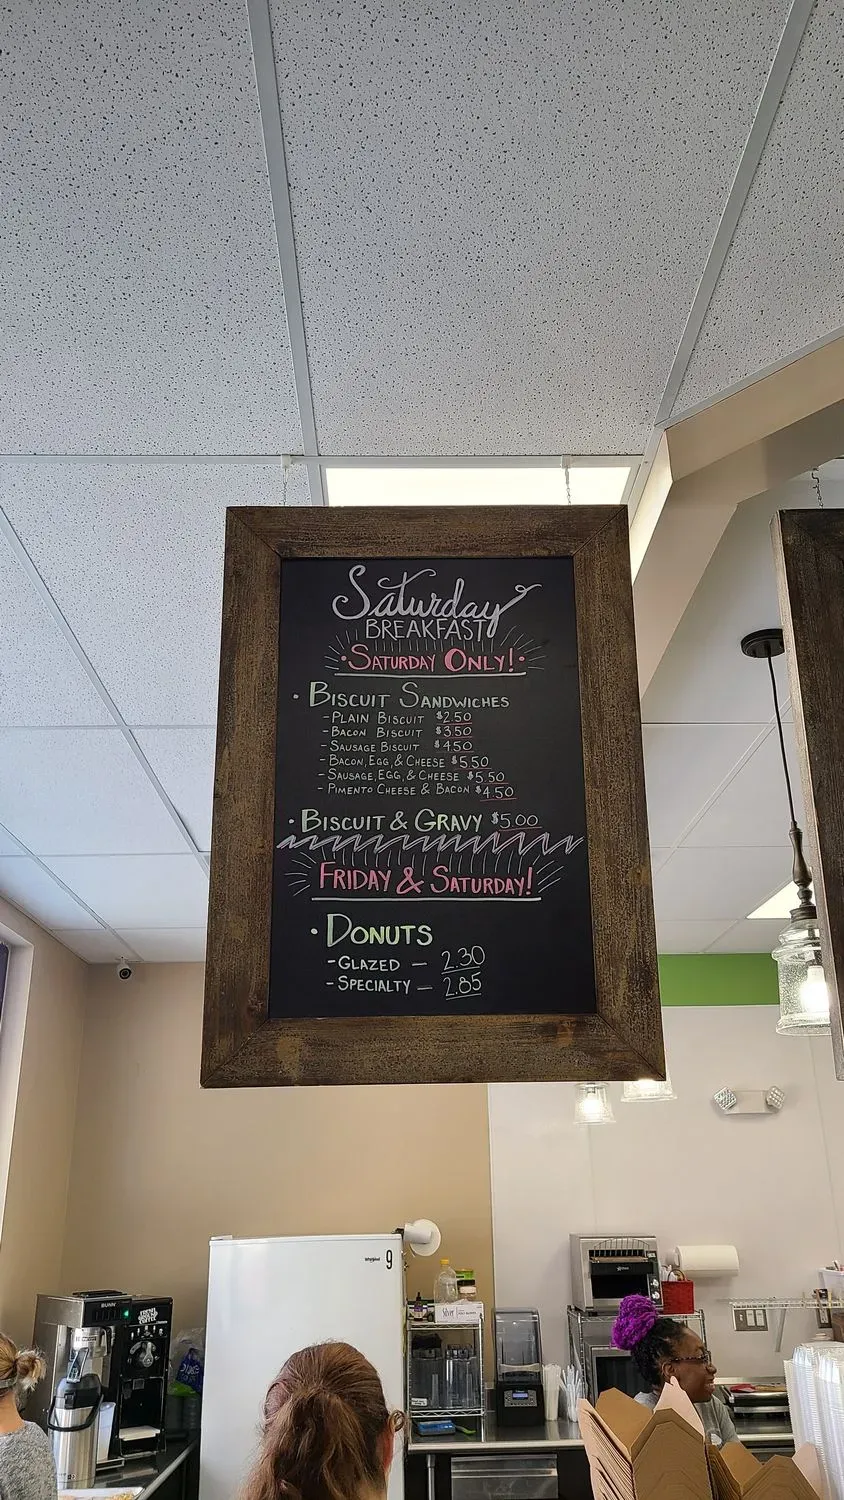 Saturday
BREAKFAST
• SATURDAY ONLY! •
• BISCUIT SANDWICHES
- PLAIN BISCUIT $2.50
- BACON BISCUIT $3.50
- SAUSAGE BISCUIT $4.50
- BACON, EGG, & CHEESE $5.50
- SAUSAGE, EGG, & CHEESE $5.50
- PIMENTO CHEESE & BACON $4.50
• BISCUIT & GRAVY $5.00
FRIDAY & SATURDAY!
• DONUTS
- GLAZED — 2.30
- SPECIALTY — 2.85
Whirlpool
9
BUNN